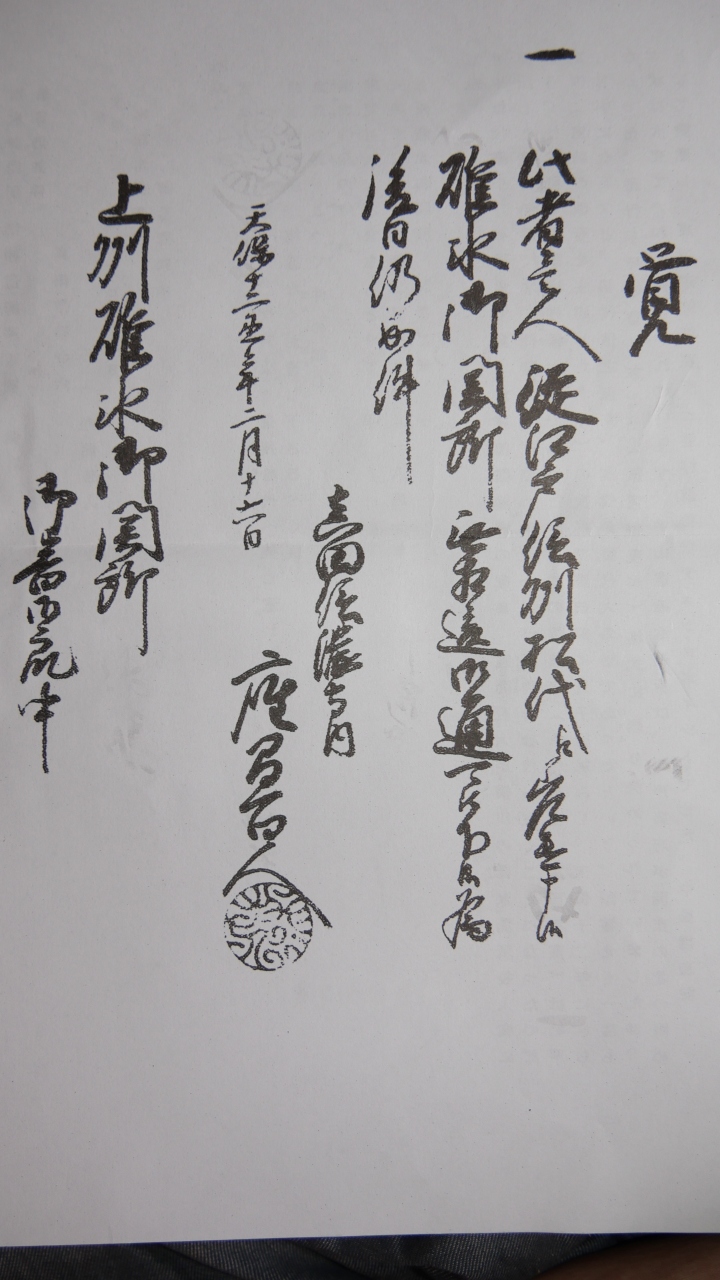 覚
一
此者壱人従江戸信州松代江差遣申候
碓氷御関所無相違御通可被下候為
後日仍如件
真田信濃守内
天保十二丑年二月十六日
上州碓氷御関所
御番衆中